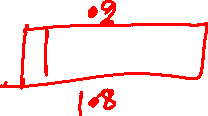 .9
1.8